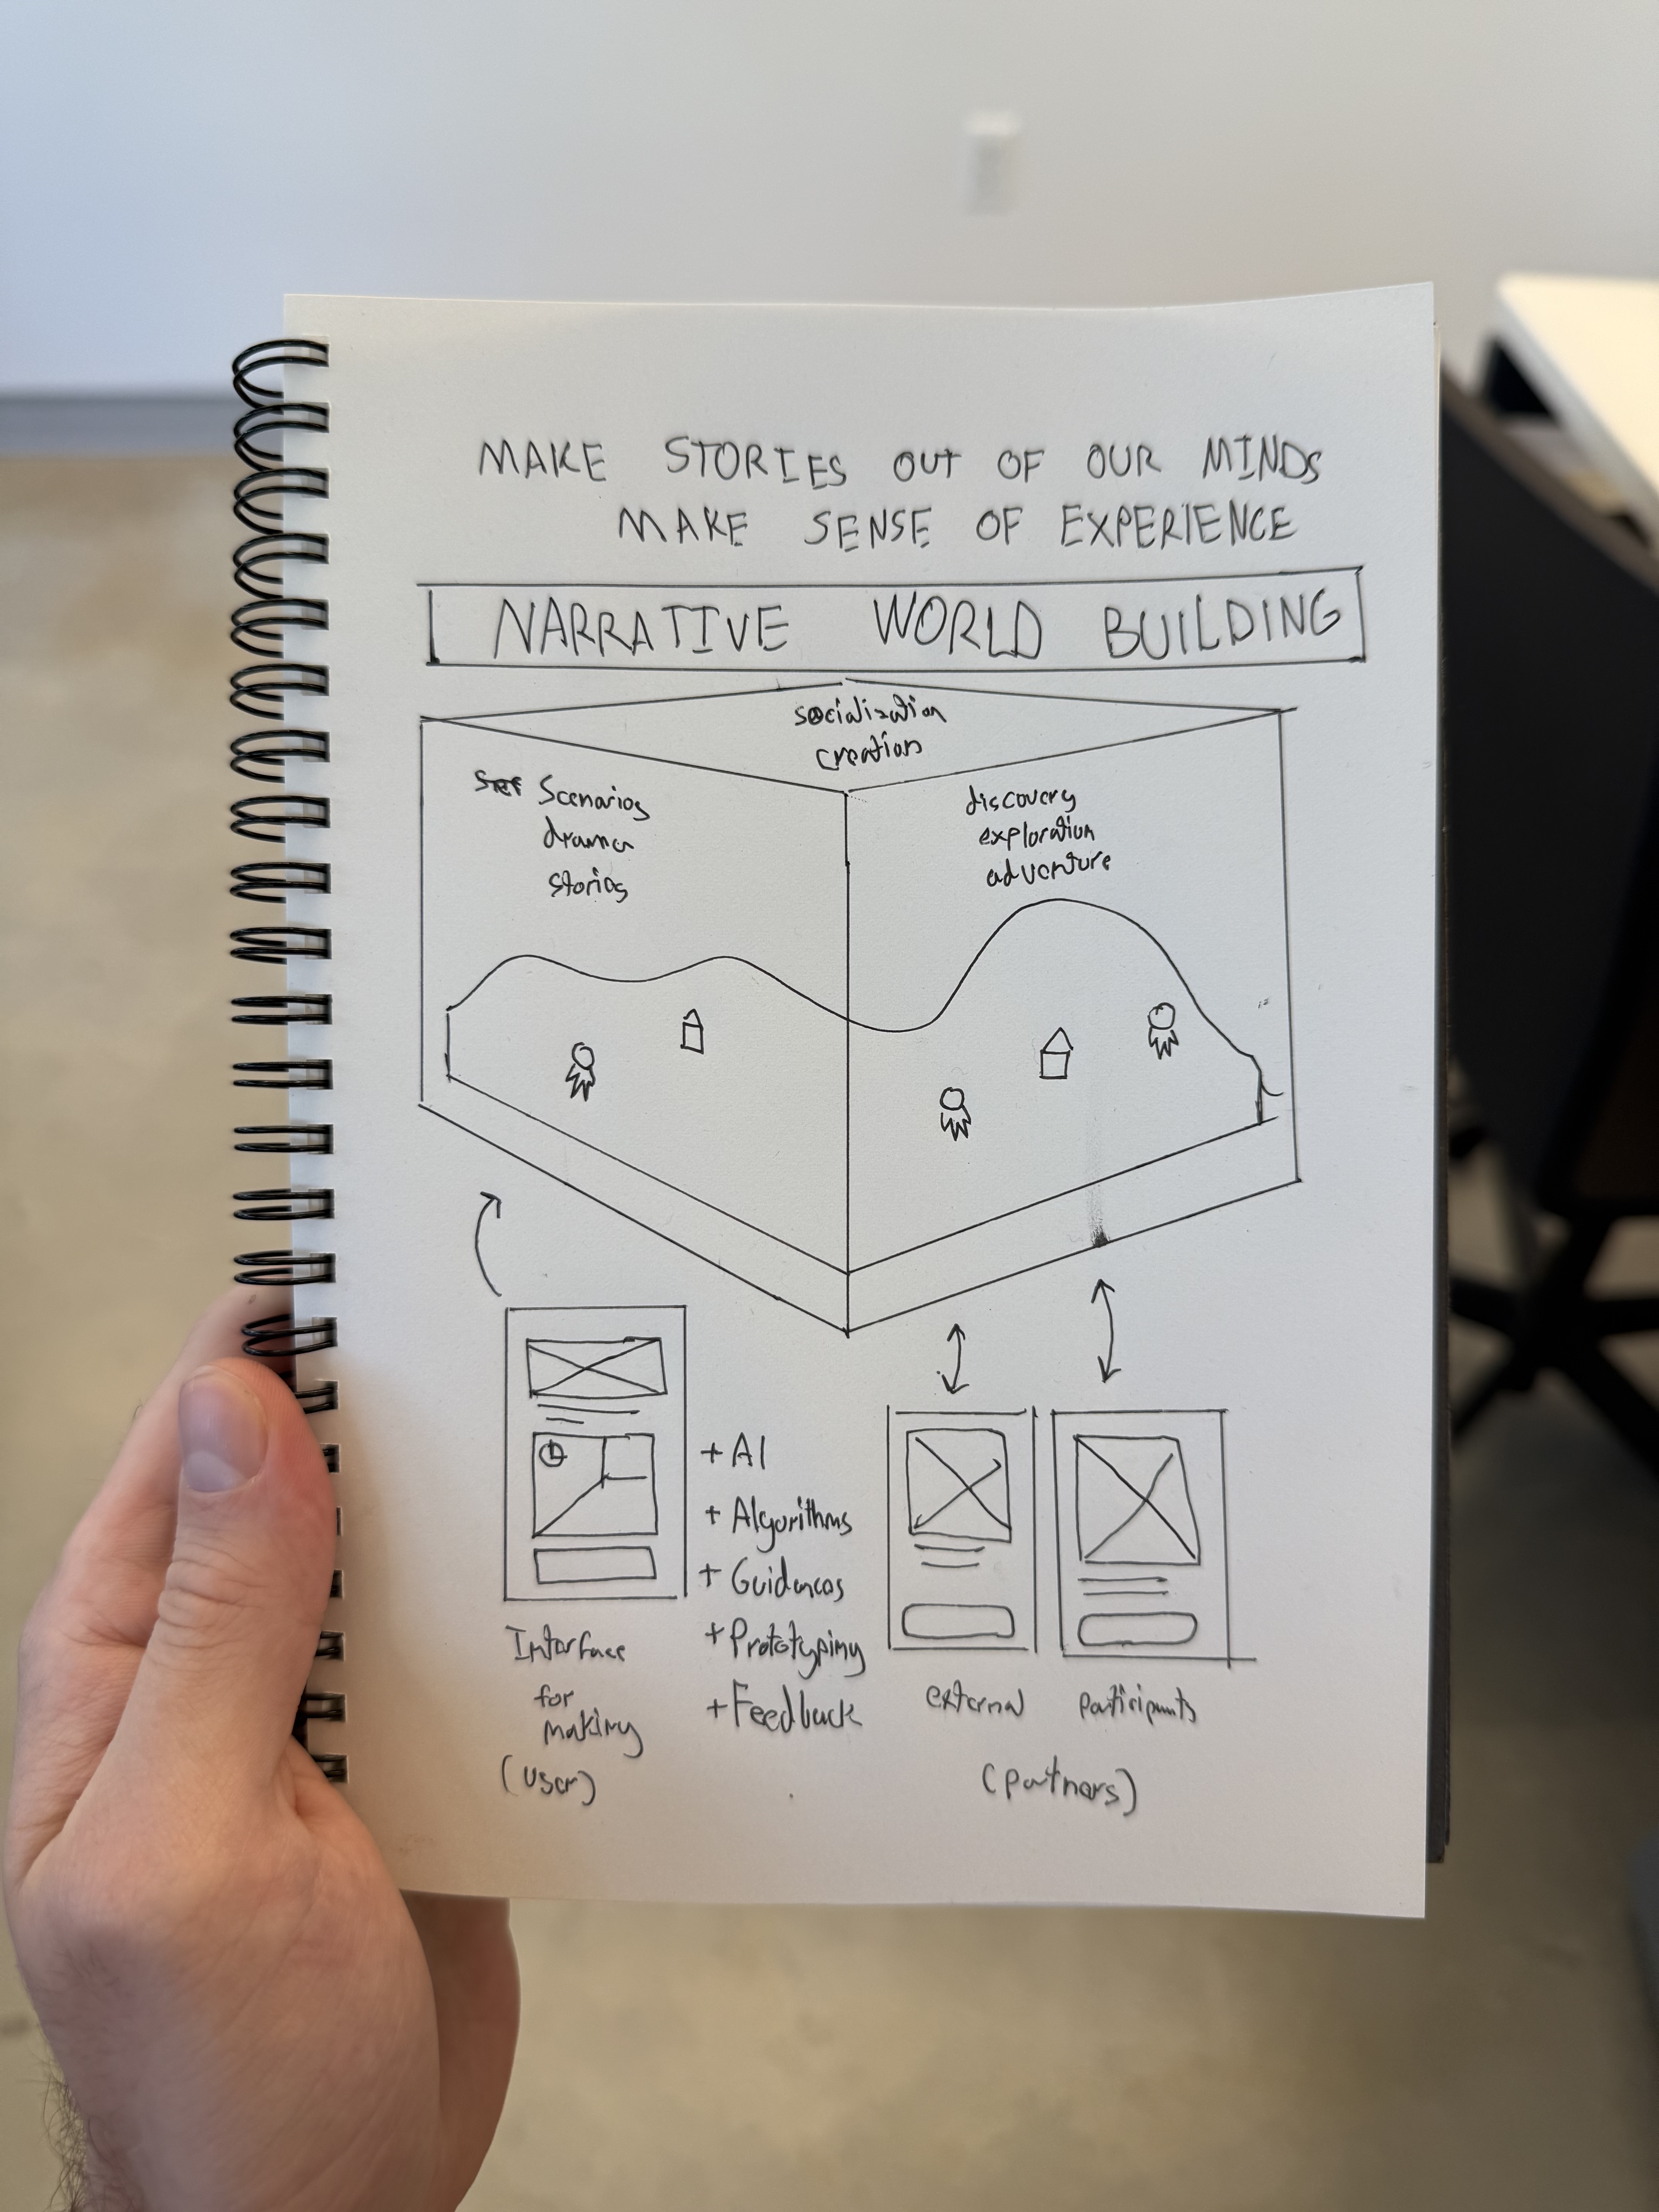 MAKE STORIES OUT OF OUR MINDS
MAKE SENSE OF EXPERIENCE
NARRATIVE WORLD BUILDING
socialization
creation
Scenarios
drama
stories
discovery
exploration
adventure
+ AI
+ Algorithms
+ Guidances
+ Prototyping
+ Feedback
Interface
for
making
(user)
external
participants
(partners)